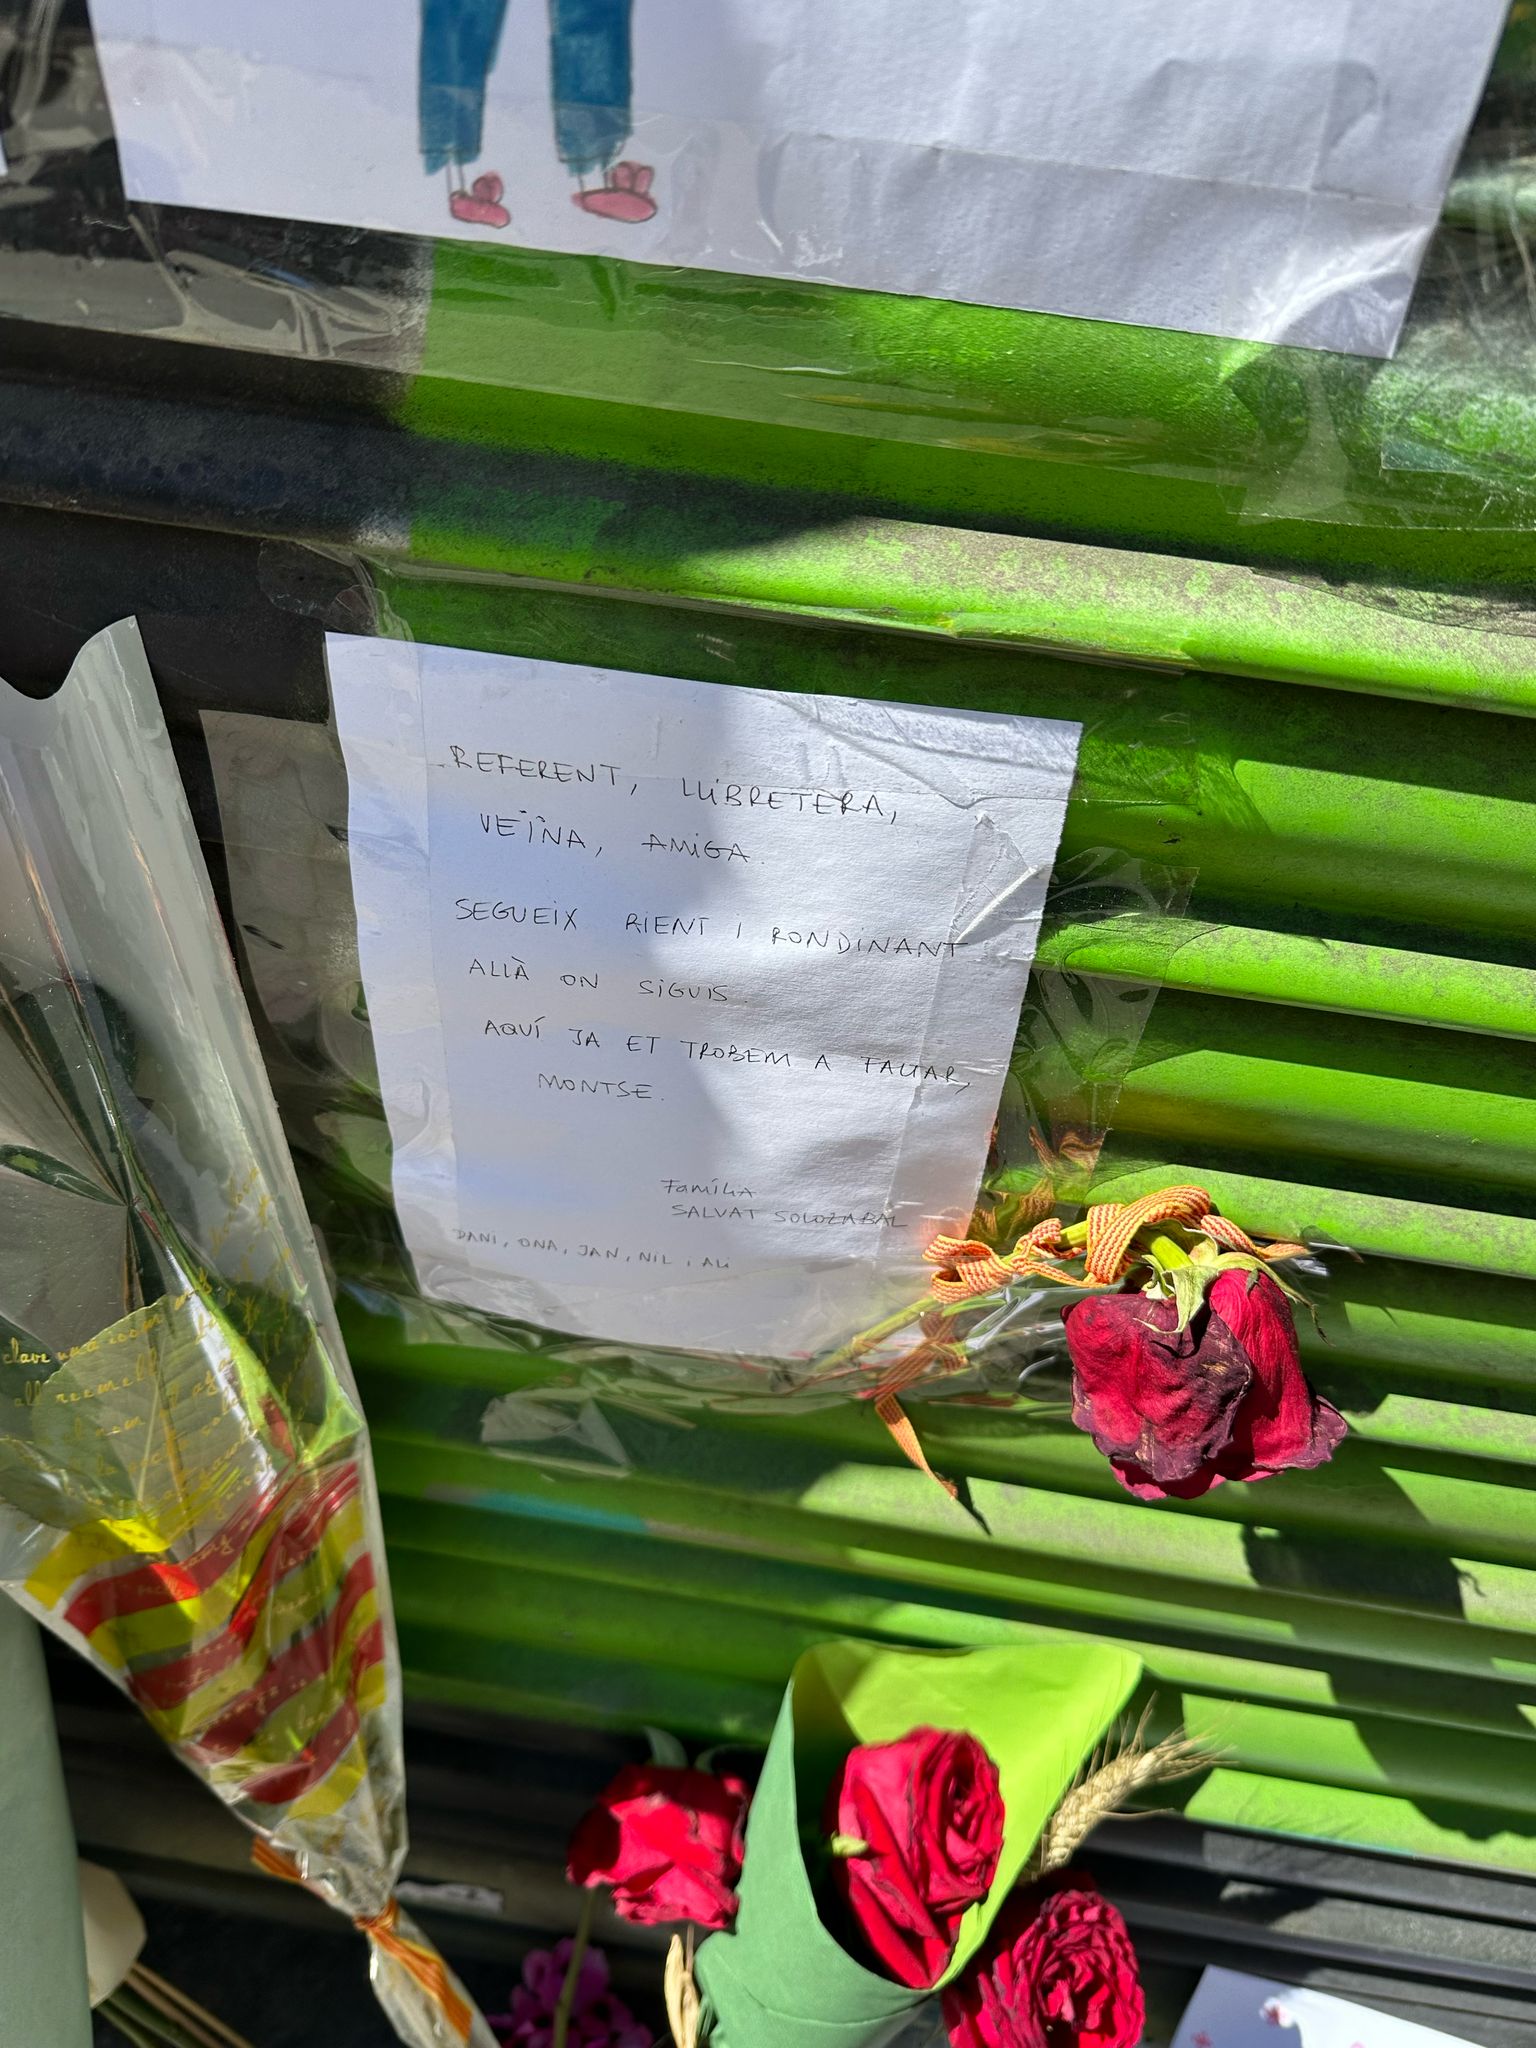 REFERENT, LLIBRETERA,
VEÏNA, AMIGA.
SEGUEIX RIENT I RONDINANT
ALLÀ ON SIGUIS.
AQUÍ JA ET TROBEM A FALTAR,
MONTSE.
Família
SALVAT SOLOZABAL
DANI, ONA, JAN, NIL i ALi